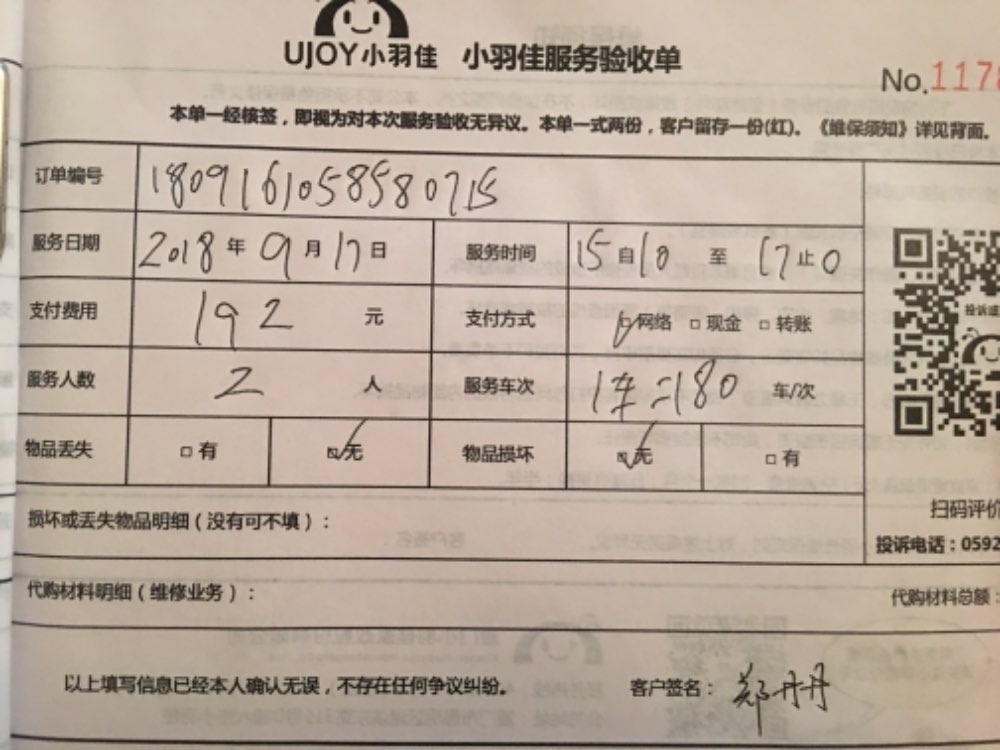 UJOY小羽佳 小羽佳服务验收单
No.1178
本单一经核签，即视为对本次服务验收无异议。本单一式两份，客户留存一份(红)。《维保须知》详见背面。
订单编号 180916105858 0715
服务日期 2018年9月17日 服务时间 15自10至17止0
支付费用 192元 支付方式 网络 □现金 □转账
服务人数 2人 服务车次 车/次
物品丢失 □有 ☑无 物品损坏 ☑无 □有
损坏或丢失物品明细（没有可不填）：
扫码评价
投诉电话：0592
代购材料明细（维修业务）：
代购材料总额：
以上填写信息已经本人确认无误，不存在任何争议纠纷。 客户签名：郑丹丹